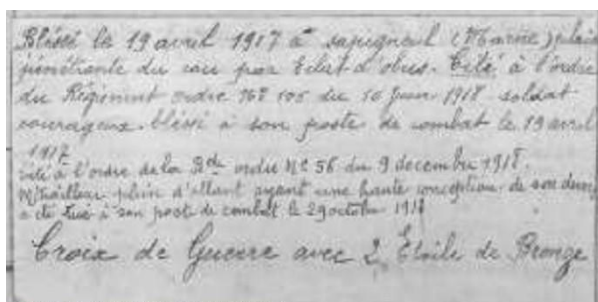 Blessé le 19 avril 1917 à sapigneul (Marne) plaie
pénétrante du cou par Eclat d'obus. Cité à l'ordre
du Régiment ordre No 105 du 10 Juin 1918 soldat
courageux blessé à son poste de combat le 19 avril
1917
Cité à l'ordre de la Bde ordre No 56 du 9 decembre 1918.
Mitrailleur plein d'allant ayant une haute conception de son devoir
a été tué à son poste de combat le 29 octobre 1918
Croix de Guerre avec 2 Etoile de Bronze